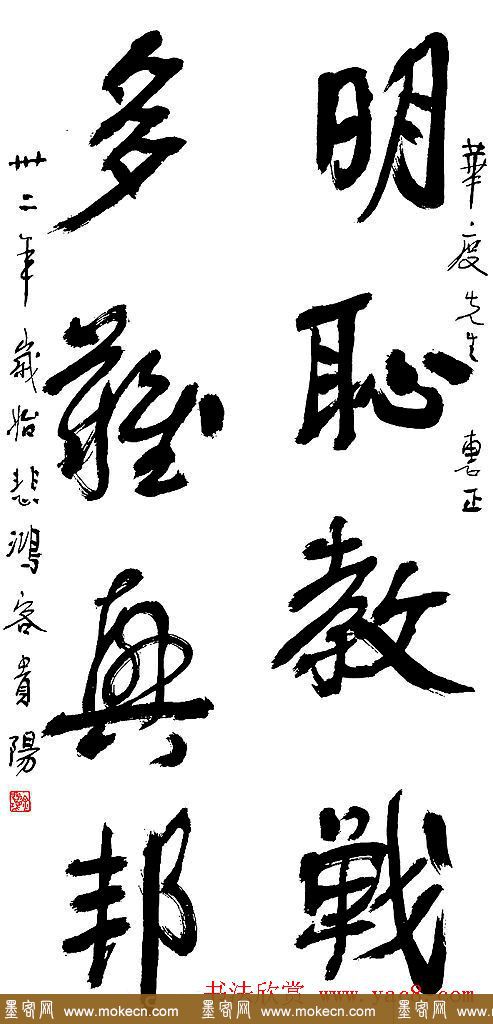 華度先生 惠正
明恥教戰
多難興邦
卅二年歲始悲鴻客貴陽
书法欣赏 www.yac8.com
墨客网 www.mokecn.com 墨客网 www.mokecn.com 墨客网 www.mokecn.com